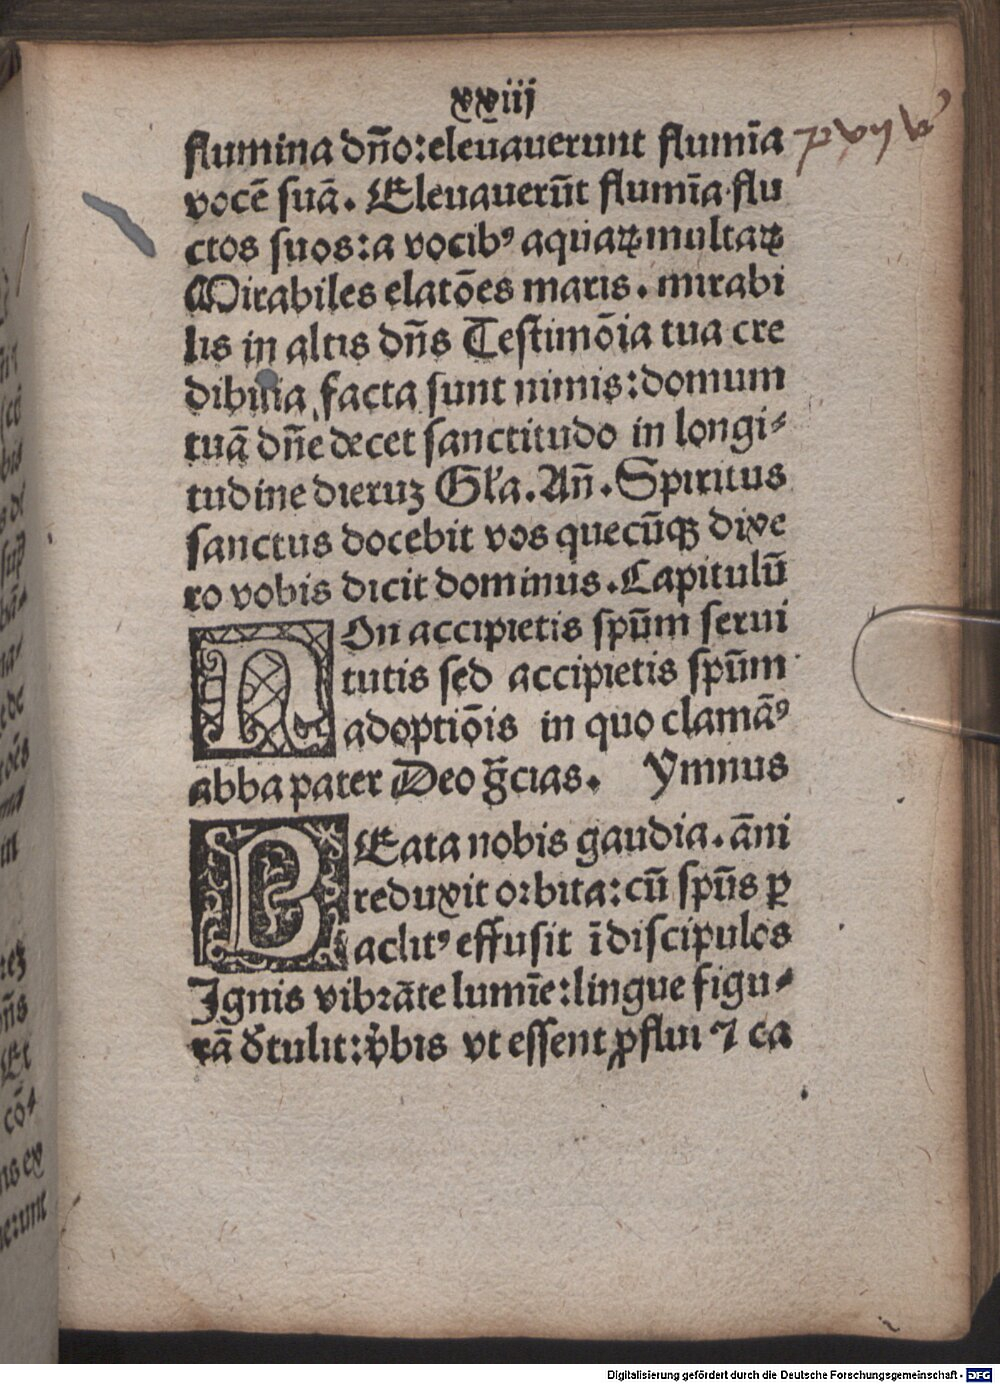 xxiij
flumina dn̄o:eleūauerunt flumīa
vocē suā. Eleuauerūt flumīa flu
ctos suos:a vocibꝰ aquaꝝ multaꝝ
Mirabiles elatōes maris. mirabi
lis in altis dn̄s Testimōia tua cre
dibilia facta sunt nimis:domum
tuā dn̄e decet sanctitudo in longi⸗
tudine dieruꝫ Gl'a. An̄. Spiritus
sanctus docebit vos quecūqꝫ dixe
ro vobis dicit dominus. Capitulū
NOn accipietis spūm serui
tutis sed accipietis spūm
adoptiōis in quo clamāꝰ
abba pater Deo gc̄ias. Ymnus
BEata nobis gaudia. āni
reduxit orbita:cū spūs ꝑ
aclitꝰ effusit ī discipulos
Ignis vibrāte lumīe:lingue figu⸗
rā detulit:vbis vt essent ꝓflui ⁊ ca
Digitalisierung gefördert durch die Deutsche Forschungsgemeinschaft - DFG